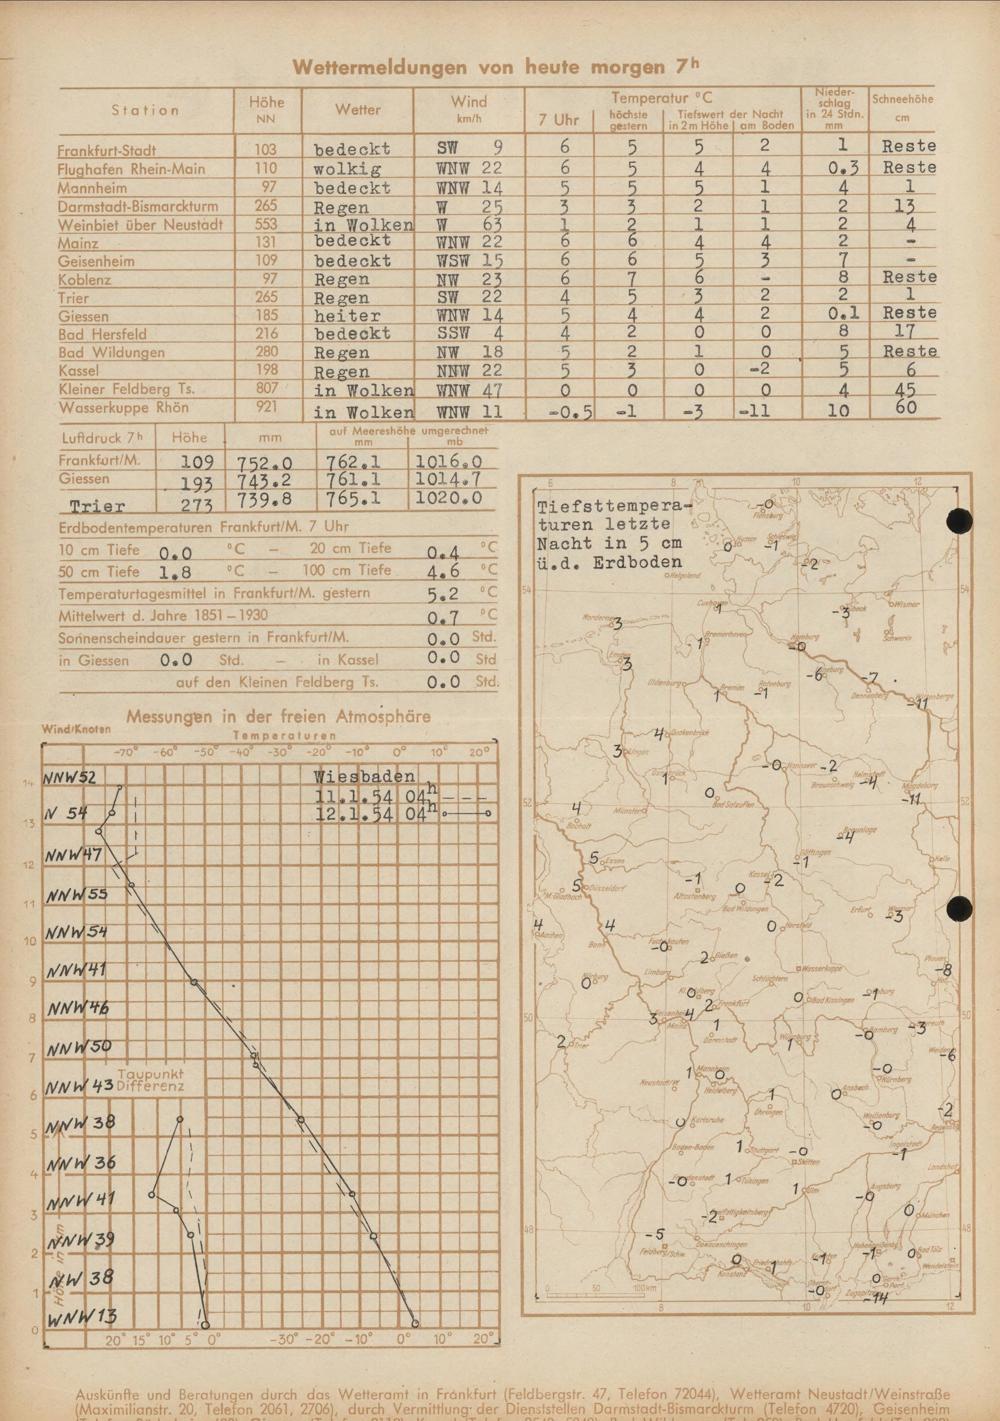 Wettermeldungen von heute morgen 7h
Station Höhe NN Wetter Wind km/h Temperatur °C 7 Uhr höchste gestern Tiefstwert der Nacht in 2 m Höhe am Boden Niederschlag in 24 Stdn. mm Schneehöhe cm
Frankfurt-Stadt 103 bedeckt SW 9 6 5 5 2 1 Reste
Flughafen Rhein-Main 110 wolkig WNW 22 6 5 4 4 0.3 Reste
Mannheim 97 bedeckt WNW 14 5 5 5 1 4 1
Darmstadt-Bismarckturm 265 Regen W 25 3 3 2 1 2 13
Weinbiet über Neustadt 553 in Wolken W 63 1 2 1 1 2 4
Mainz 131 bedeckt WNW 22 6 6 4 4 2 -
Geisenheim 109 bedeckt WSW 15 6 6 5 3 7 -
Koblenz 97 Regen NW 23 6 7 6 - 8 Reste
Trier 265 Regen SW 22 4 5 3 2 2 1
Giessen 185 heiter WNW 14 5 4 4 2 0.1 Reste
Bad Hersfeld 216 bedeckt SSW 4 4 2 0 0 8 17
Bad Wildungen 280 Regen NW 18 5 2 1 0 5 Reste
Kassel 198 Regen NNW 22 5 3 0 -2 5 6
Kleiner Feldberg Ts. 807 in Wolken WNW 47 0 0 0 0 4 45
Wasserkuppe Rhön 921 in Wolken WNW 11 -0.5 -1 -3 -11 10 60
Luftdruck 7h Höhe mm auf Meereshöhe umgerechnet mm mb
Frankfurt/M. 109 752.0 762.1 1016.0
Giessen 193 743.2 761.1 1014.7
Trier 273 739.8 765.1 1020.0
Erdbodentemperaturen Frankfurt/M. 7 Uhr
10 cm Tiefe 0.0 °C – 20 cm Tiefe 0.4 °C
50 cm Tiefe 1.8 °C – 100 cm Tiefe 4.6 °C
Temperaturtagesmittel in Frankfurt/M. gestern 5.2 °C
Mittelwert d. Jahre 1851–1930 0.7 °C
Sonnenscheindauer gestern in Frankfurt/M. 0.0 Std.
in Giessen 0.0 Std. – in Kassel 0.0 Std
auf den Kleinen Feldberg Ts. 0.0 Std.
Messungen in der freien Atmosphäre
Wind/Knoten Temperaturen
-70° -60° -50° -40° -30° -20° -10° 0° 10° 20°
Wiesbaden
11.1.54 04h
12.1.54 04h
14 NNW 52
N 54
13
NNW 47
12
NNW 55
11
NNW 54
10
NNW 41
9
NNW 46
8
NNW 50
7
NNW 43
Taupunkt Differenz
6
NNW 38
5
NNW 36
4
NNW 41
3
NNW 39
2
NW 38
1
WNW 13
0
Höhe in km
20° 15° 10° 5° 0° -30° -20° -10° 0° 10° 20°
Tiefsttempera-
turen letzte
Nacht in 5 cm
ü.d. Erdboden
6 8 10 12
-0 Flensburg
0 -1
-2
Helgoland
54
Cuxhaven 1
-3 Wismar
Norderney 3
Schwerin
Emden 3
-1 Bremerhaven
Hamburg -0
Oldenburg Bremen 1 -1
-6 Lüneburg -7 Dannenberg
-11
4 Osnabrück
3 Lingen
-0 Hannover -2 Braunschweig -4 Helmstedt
Magdeburg -11
1
0 Bad Salzuflen
52
Münster
4 Bocholt
-4 Braunlage
5 Essen
Göttingen -1
Halle
5 Düsseldorf M-Gladbach
-1 Altastenberg
0 Bad Wildungen
Kassel -2
Erfurt -3
4 Aachen
4 Bonn
0 Hersfeld
-0
2 Gießen
Wasserkuppe
Plauen -8
0
Limburg
Schlüchtern
Kl. Feldberg 0
2 Frankfurt
0 Bad Kissingen
-1 Coburg
50
3 4 Mainz
1 Darmstadt
Würzburg 1
-0 Bamberg
-3
2 Trier
Weiden -6
1 Mannheim 0 Heidelberg
Neustadt/W
-0 Nürnberg
0 Ansbach
1 Öhringen
0 Karlsruhe
-0 Weißenburg
-2
Baden-Baden
1 Stuttgart
-0
Ingolstadt -1
Landshut
-0 Freudenstadt
1 Tübingen
1 Ulm
-0 Augsburg
-2
0 München
48
-5 Feldberg/Schw.
Donaueschingen
0 Konstanz
1
-1
-1
0 Bad Tölz
Wendelstein
-0
0
Zugspitze -14
0 50 100 km
8 10 12
Auskünfte und Beratungen durch das Wetteramt in Frankfurt (Feldbergstr. 47, Telefon 72044), Wetteramt Neustadt/Weinstraße
(Maximilianstr. 20, Telefon 2061, 2706), durch Vermittlung der Dienststellen Darmstadt-Bismarckturm (Telefon 4720), Geisenheim